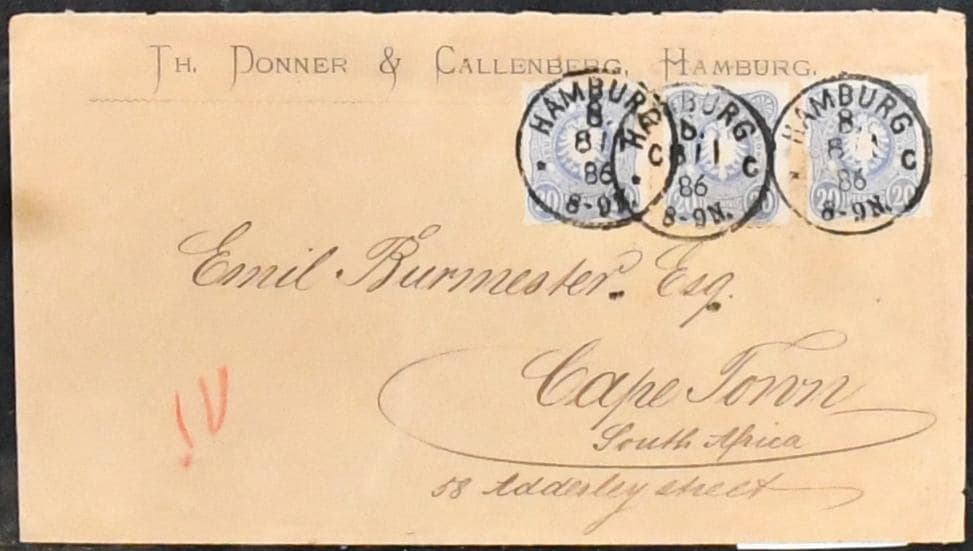 TH. DONNER & CALLENBERG, HAMBURG.
HAMBURG
8.
8 11
86
8-9N.
HAMBURG
8.
8 11
86
C
8-9N.
HAMBURG
8.
8 11
86
C
8-9N.
20
20
20
20
20
Emil Burmester. Esq.
Cape Town
South Africa
58 Adderley street